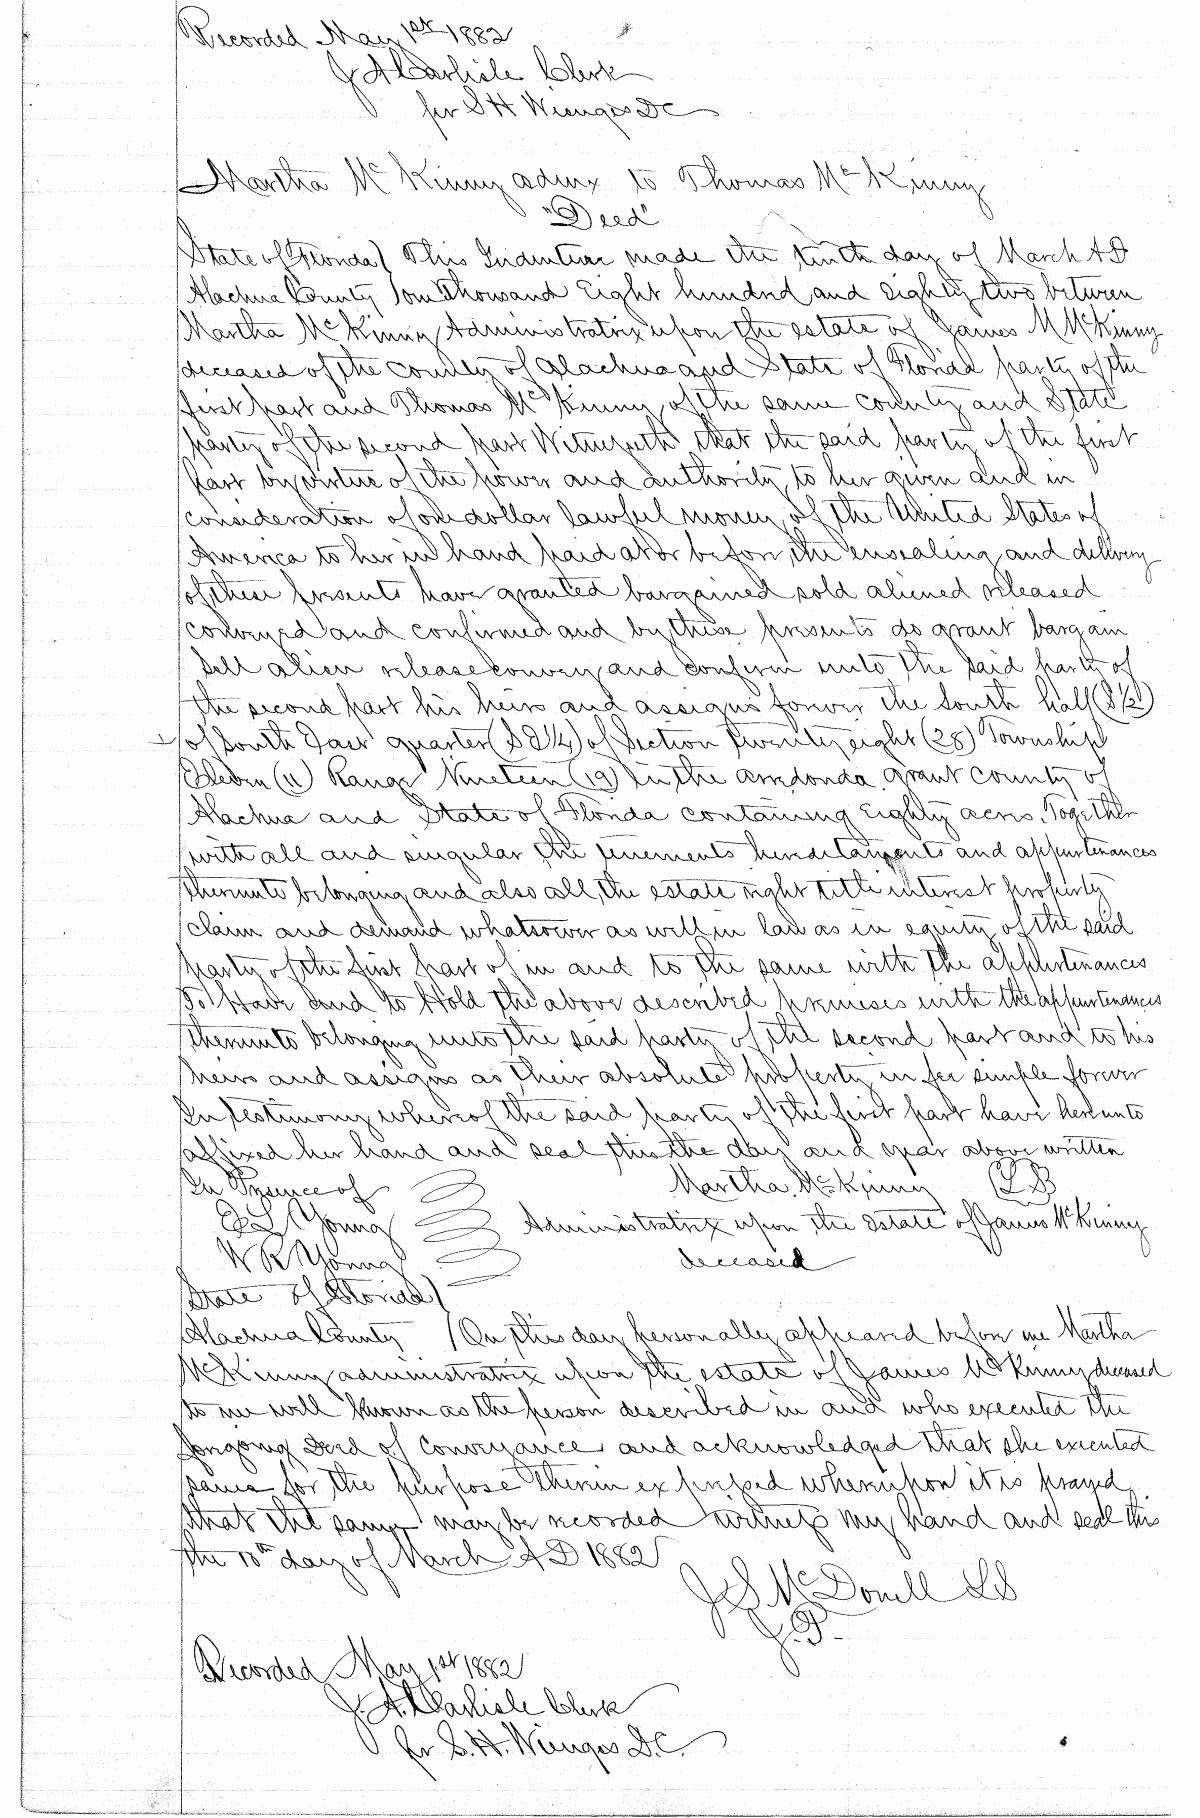 Recorded May 1st 1882
J A Carlisle Clerk
for S H Wienges D C
Martha Mc Kinny admx to Thomas Mc Kinny
"Deed"
State of Florida ) This Indenture made the tenth day of March A D
Alachua County ) one Thousand Eight hundred and eighty two between
Martha McKinny Administratrix upon the estate of James M McKinny
deceased of the county of Alachua and State of Florida party of the
first part and Thomas Mc Kinny of the same county and State
party of the second part Witnesseth that the said party of the first
part by virtue of the power and authority to her given and in
consideration of one dollar lawful money of the United States of
America to her in hand paid at or before the ensealing and delivery
of these presents have granted bargained sold aliened released
conveyed and confirmed and by these presents do grant bargain
sell alien release convey and confirm unto the said party of
the second part his heirs and assigns forever the South half (S½)
of South East quarter (S E ¼) of Section Twenty eight (28) Township
Eleven (11) Range Nineteen (19) in the arredonda grant county of
Alachua and State of Florida containing Eighty acres. Together
with all and singular the tenements hereditaments and appurtenances
thereunto belonging and also all the estate right title interest property
claim and demand whatsoever as well in law as in equity of the said
party of the first part of in and to the same with the appurtenances
To Have and to Hold the above described premises with the appurtenances
thereunto belonging unto the said party of the second part and to his
heirs and assigns as their absolute property in fee simple forever
In testimony whereof the said party of the first part have hereunto
affixed her hand and seal this the day and year above written
In Presence of Martha McKinny (L S)
E L Young Administratrix upon the Estate of James McKinny
W R Young deceased
State of Florida )
Alachua County ) On this day personally appeared before me Martha
McKinny administratrix upon the estate of James McKinny deceased
to me well known as the person described in and who executed the
forgoing Deed of Conveyance and acknowledged that she executed
same for the purpose therein expressed whereupon it is prayed
that the same may be recorded witness my hand and seal this
the 10th day of March A D 1882
J S McDonell LS
J.P.
Recorded May 1st 1882
J. A. Carlisle Clerk
for S. H. Wienges D.C.